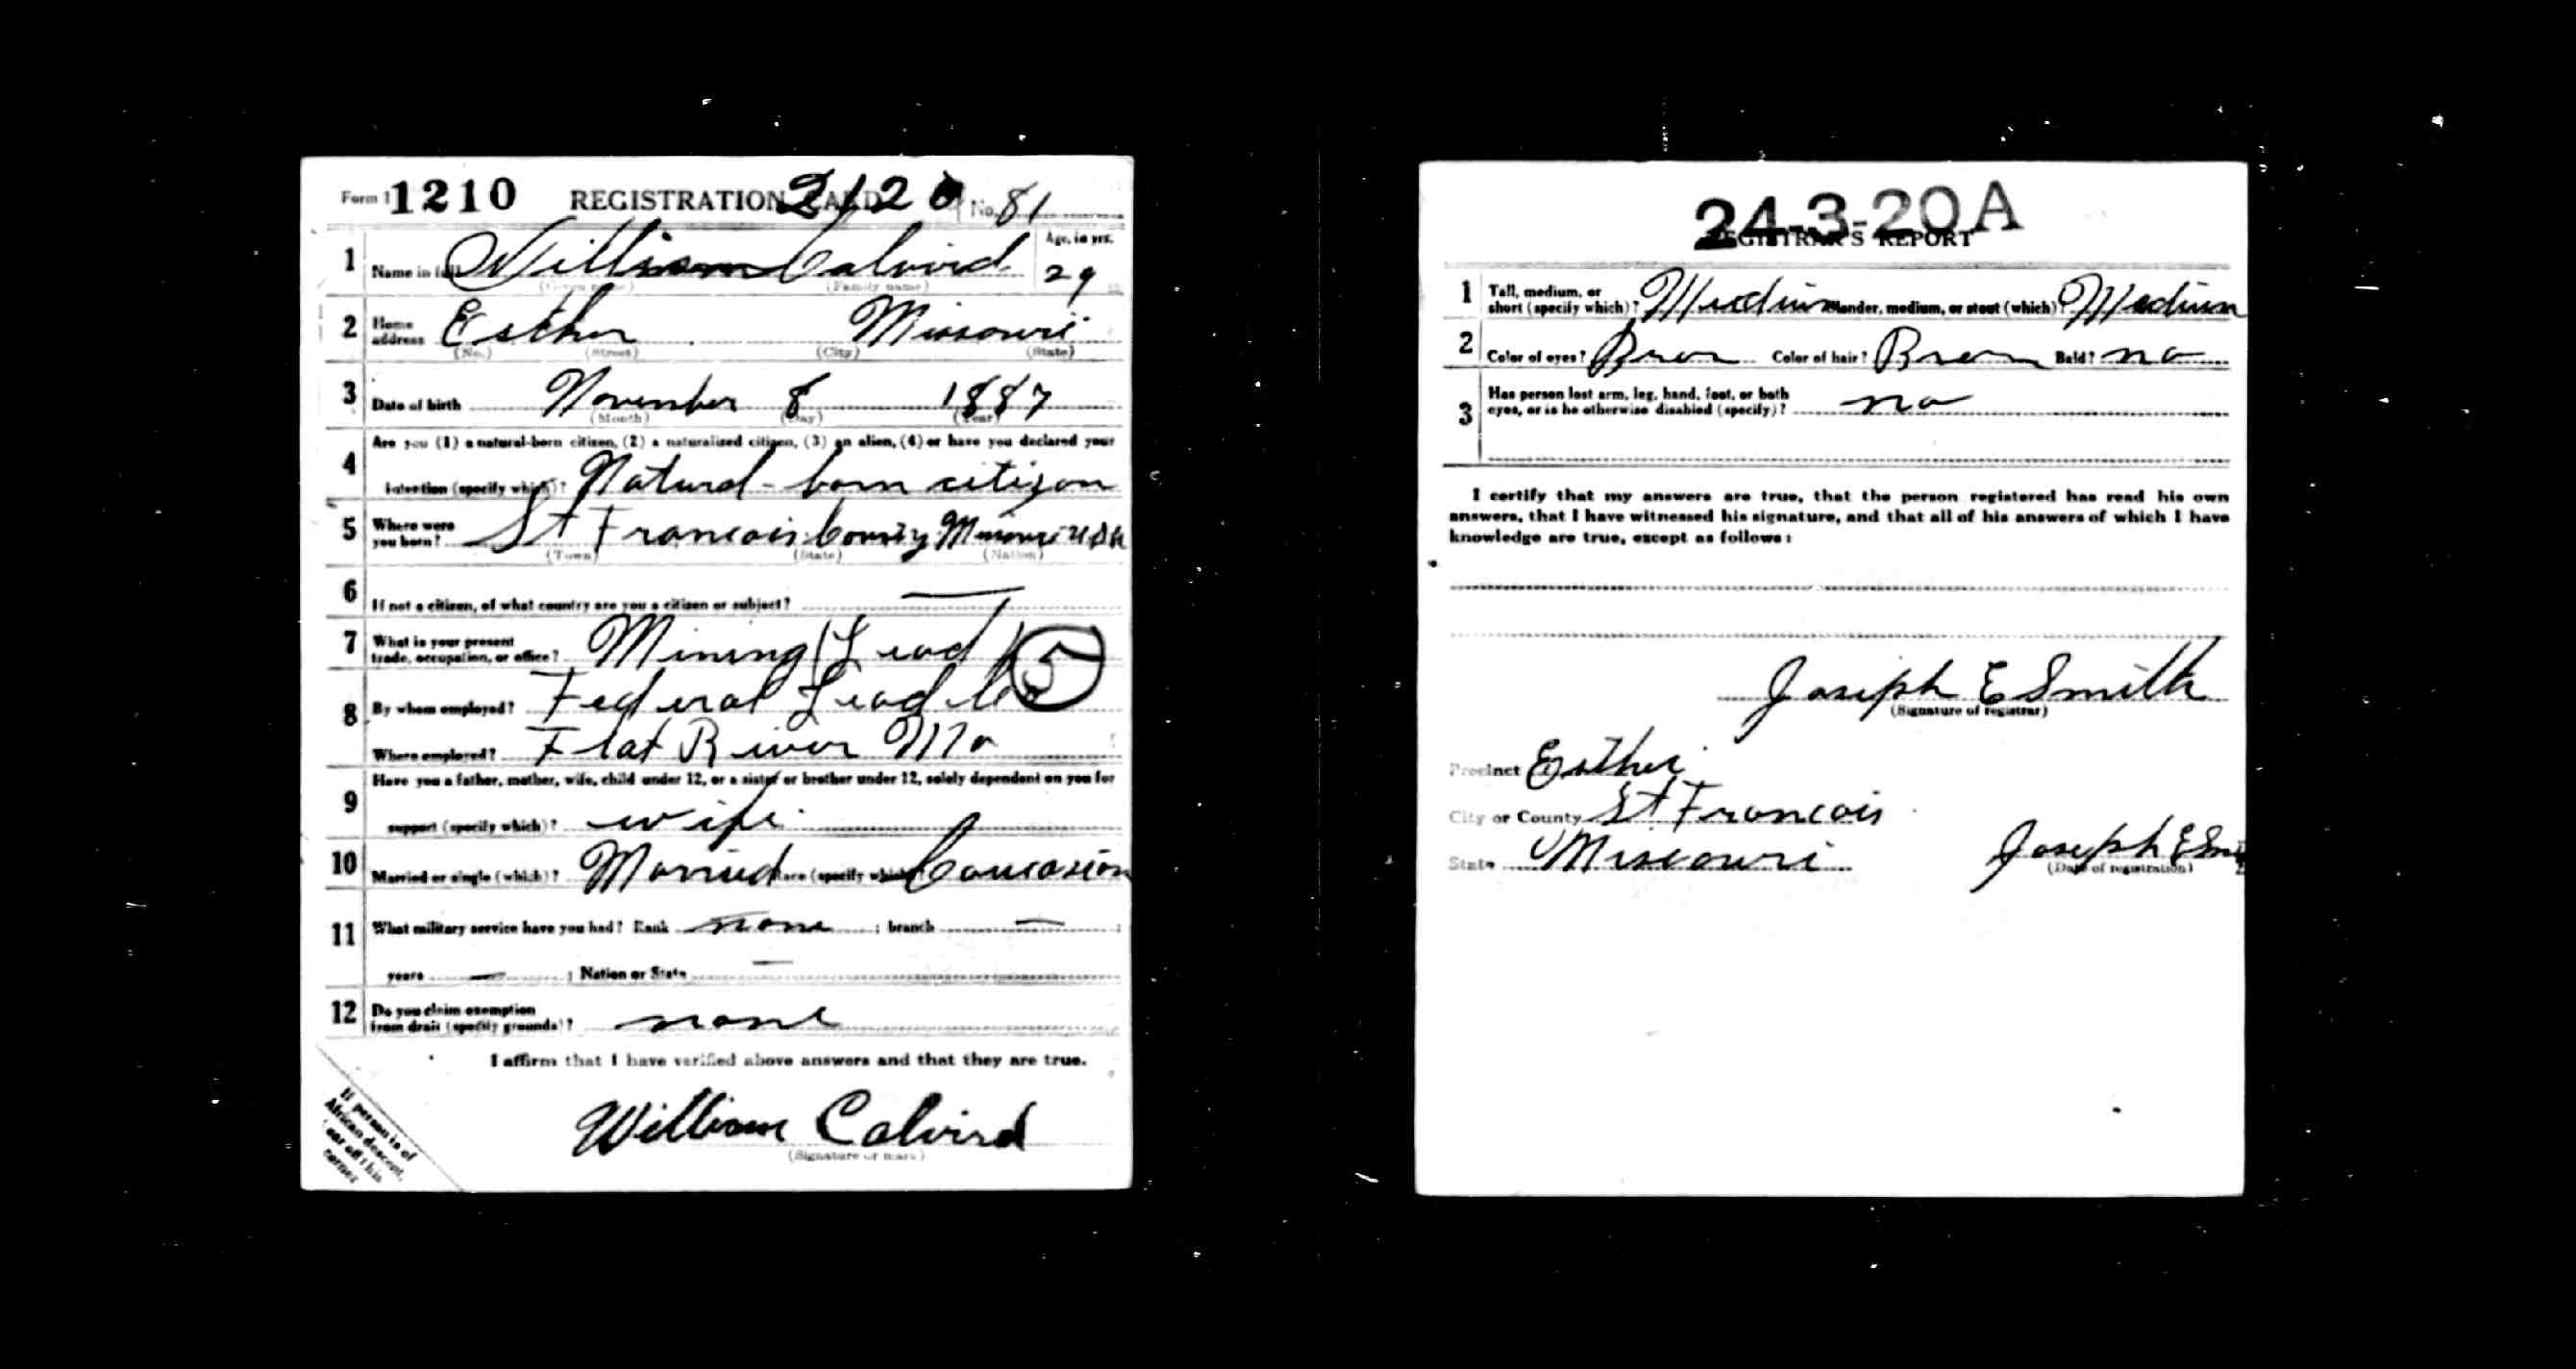 Form 1 1210 REGISTRATION CARD 2120 No. 81
1 Name in full William Calvird Age, in yrs. 29
(Given name) (Family name)
2 Home address Esther Missouri
(No.) (Street) (City) (State)
3 Date of birth November 8 1887
(Month) (Day) (Year)
4 Are you (1) a natural-born citizen, (2) a naturalized citizen, (3) an alien, (4) or have you declared your
intention (specify which)? Natural-born citizen
5 Where were you born? St Francois County Missouri USA
(Town) (State) (Nation)
6 If not a citizen, of what country are you a citizen or subject? —
7 What is your present trade, occupation, or office? Mining (Lead) 5
8 By whom employed? Federal Lead Co
Where employed? Flat River Mo
9 Have you a father, mother, wife, child under 12, or a sister or brother under 12, solely dependent on you for
support (specify which)? wife
10 Married or single (which)? Married Race (specify which)? Caucasion
11 What military service have you had? Rank none ; branch — ;
years — ; Nation or State —
12 Do you claim exemption from draft (specify grounds)? none
I affirm that I have verified above answers and that they are true.
William Calvird
(Signature or mark)
If person is of
African descent,
tear off this
corner
24-3-20 A
REGISTRAR'S REPORT
1 Tall, medium, or short (specify which)? Medium Slender, medium, or stout (which)? Medium
2 Color of eyes? Bron Color of hair? Bron Bald? no
3 Has person lost arm, leg, hand, foot, or both
eyes, or is he otherwise disabled (specify)? no
I certify that my answers are true, that the person registered has read his own
answers, that I have witnessed his signature, and that all of his answers of which I have
knowledge are true, except as follows:
Joseph E Smith
(Signature of registrar)
Precinct Esther
City or County St Francois
State Missouri Joseph E Smi
(Date of registration)